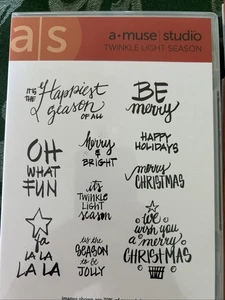 a|s
a•muse|studio
TWINKLE LIGHT SEASON
IT'S
THE Happiest
Season
OF ALL
BE
merry
OH
WHAT
FUN
Merry
&
BRIGHT
HAPPY
HOLIDAYS
merry
CHRISTMAS
it's
TWINKLE
LIGHT
season
FA
LA LA
LA LA
'tis the
SEASON
to be
JOLLY
we
wish you
a merry
CHRISTMAS
images shown are 70% of